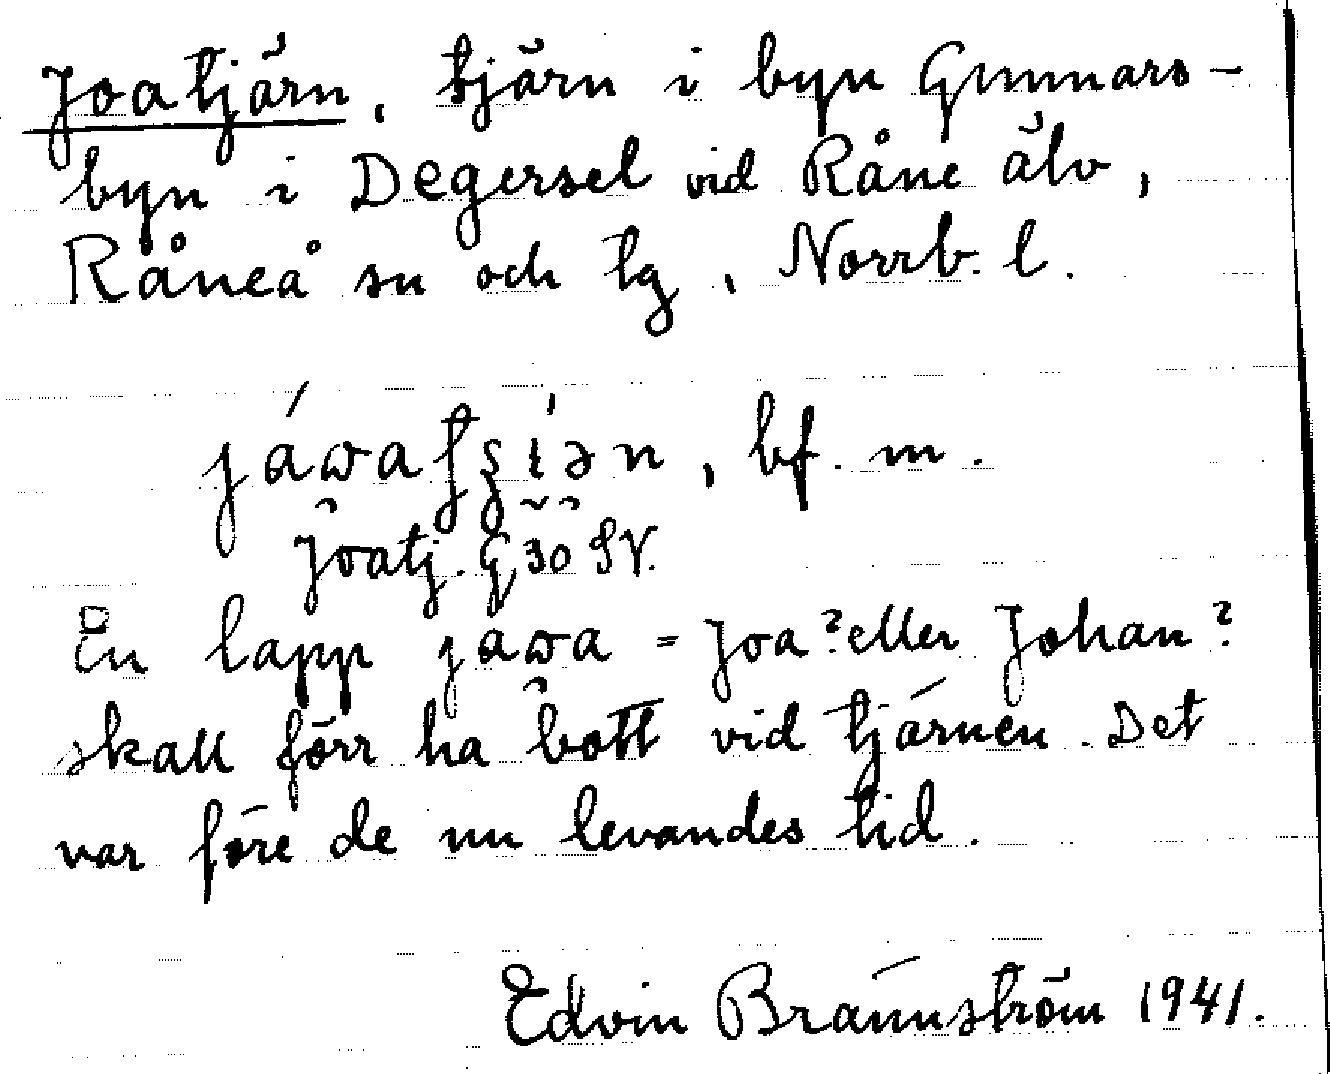 Joatjärn, tjärn i byn Gunnars-
byn i Degersel vid Råne älv,
Råneå sn och tg, Norrb. l.
bf. m.
Joatj. G 30 SV.
En lapp jawa = Joa? eller Johan?
skall förr ha bott vid tjärnen. Det
var före de nu levandes tid.
Edvin Brännström 1941.